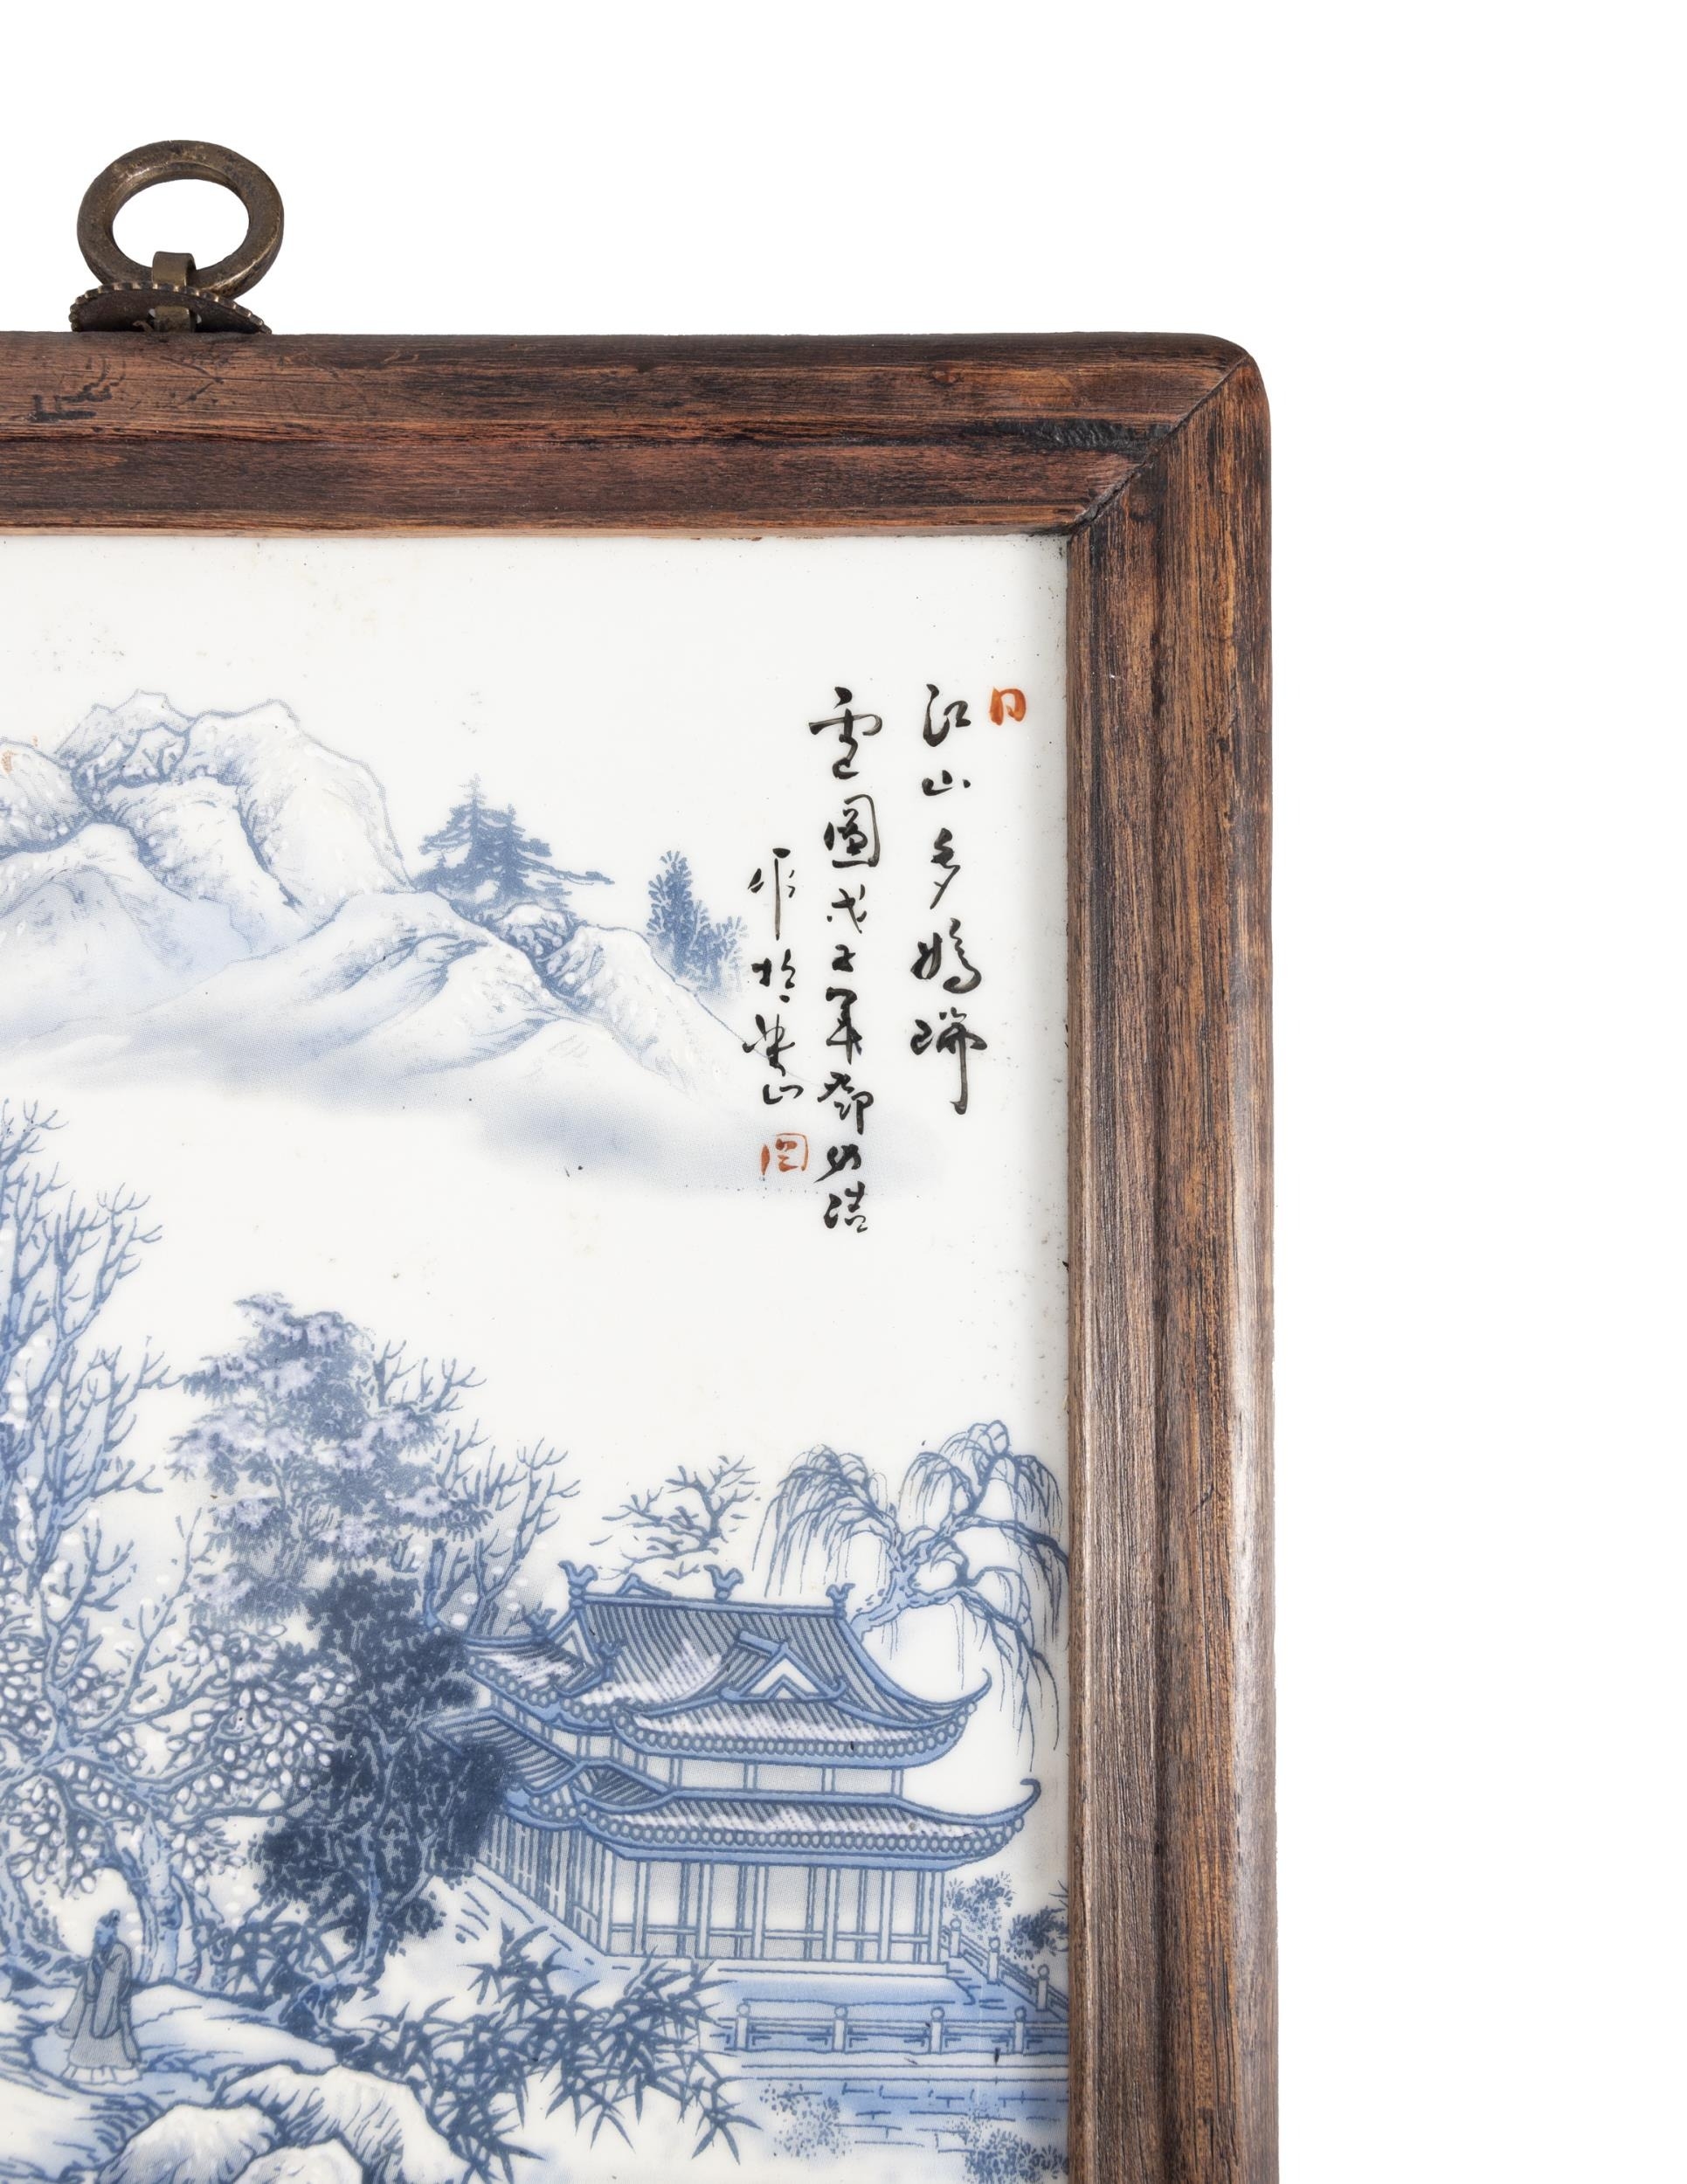 江山多嬌瑞
雪圖戊子年鄧幼浩
作於梁山